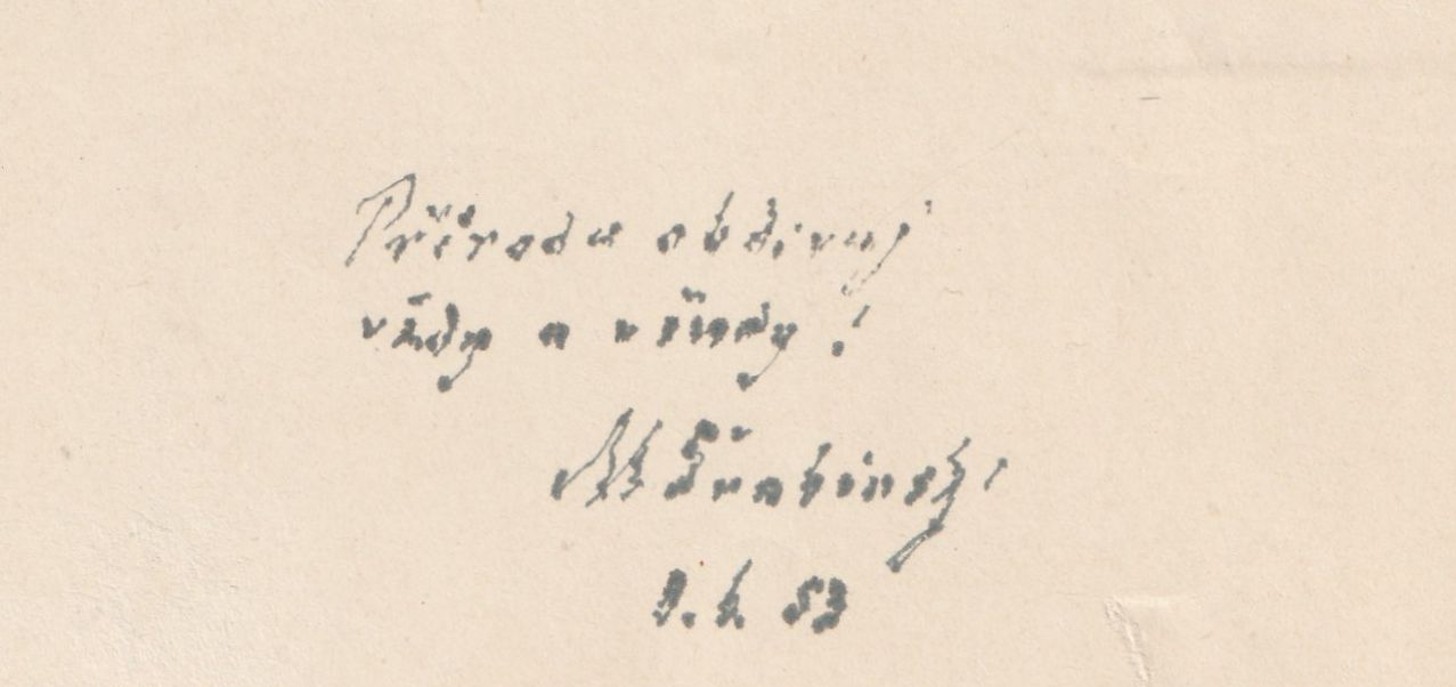 Přírodu obdivuj
vždy a všudy!
M Švabinský
53